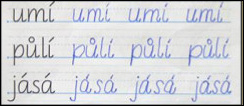 umí umí umí umí
půlí půlí půlí půlí
jásá jásá jásá jásá